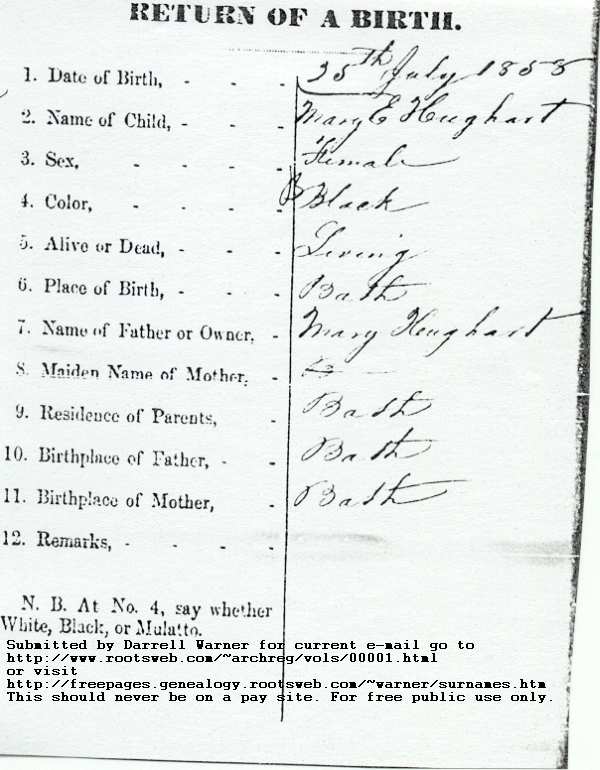 RETURN OF A BIRTH.
1. Date of Birth, - - - 25th July 1858
2. Name of Child, - - - Mary E Hughart
3. Sex, - - - - Female
4. Color, - - - - B Black
5. Alive or Dead, - - - Living
6. Place of Birth, - - - Bath
7. Name of Father or Owner, - Mary Hughart
8. Maiden Name of Mother, -
9. Residence of Parents, - Bath
10. Birthplace of Father, - - Bath
11. Birthplace of Mother, - Bath
12. Remarks, - - - -
N. B. At No. 4, say whether
White, Black, or Mulatto.
Submitted by Darrell Warner for current e-mail go to
http://www.rootsweb.com/~archreg/vols/00001.html
or visit
http://freepages.genealogy.rootsweb.com/~warner/surnames.htm
This should never be on a pay site. For free public use only.